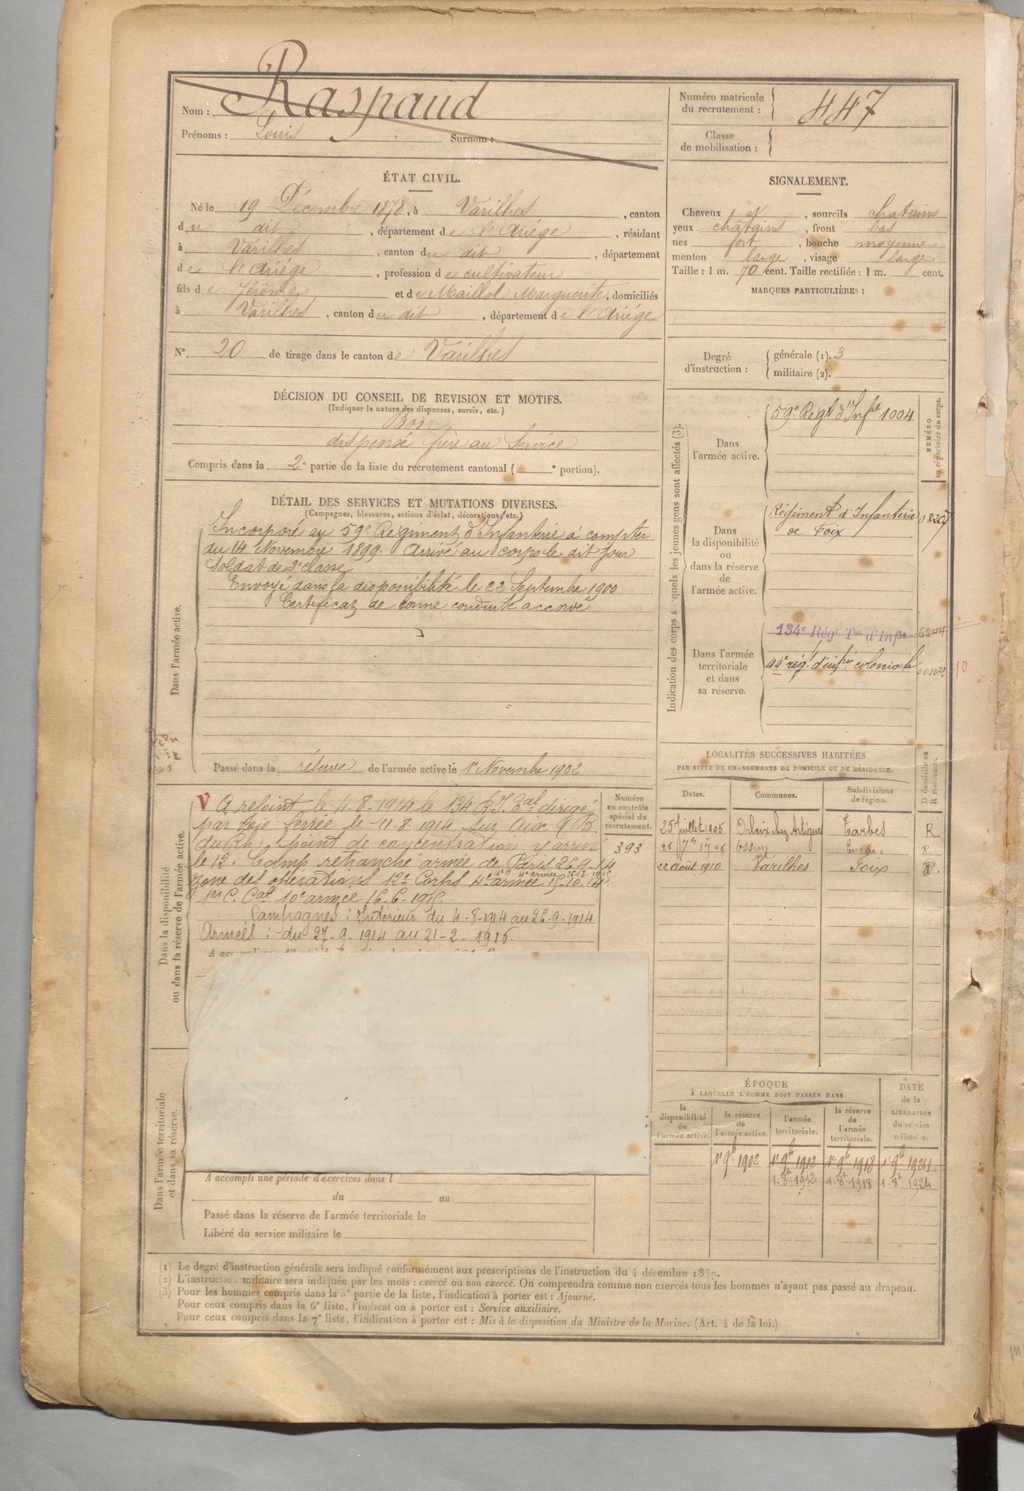 Nom : Raspaud
Prénoms : Louis Surnom :
Numéro matricule du recrutement : 447
Classe de mobilisation :
ÉTAT CIVIL.
Né le 19 Décembre 1878, à Varilhes, canton
du dit, département de l'Ariége, résidant
à Varilhes, canton du dit, département
de l'Ariége, profession de cultivateur
fils de Jérôme et de Maillol Marguerite, domiciliés
à Varilhes, canton du dit, département de l'Ariége
N° 20 de tirage dans le canton de Varilhes
SIGNALEMENT.
Cheveux et, sourcils chatains
yeux châtains, front bas
nez fort, bouche moyenne
menton large, visage large
Taille : 1 m. 70 cent. Taille rectifiée : 1 m. cent.
MARQUES PARTICULIÈRES :
Degré d'instruction : générale (1). 3
militaire (2).
DÉCISION DU CONSEIL DE REVISION ET MOTIFS.
(Indiquer la nature des dispenses, sursis, etc.)
Bon
dispensé frère au service
Compris dans la 2e partie de la liste du recrutement cantonal ( e portion).
DÉTAIL DES SERVICES ET MUTATIONS DIVERSES.
(Campagnes, blessures, actions d'éclat, décorations, etc.)
Dans l'armée active.
Incorporé au 59e Régiment d'Infanterie à compter
du 14 Novembre 1899. Arrivé au corps le dit jour
Soldat de 2e classe
Envoyé dans la disponibilité le 22 Septembre 1900
Certificat de bonne conduite accordé
Passé dans la réserve de l'armée active le 1er Novembre 1902
Indication des corps auxquels les jeunes gens sont affectés (3).
NUMÉRO au répertoire du corps.
Dans l'armée active.
59e Régt d'Infie 1004
Dans la disponibilité ou dans la réserve de l'armée active.
Régiment d'Infanterie
de Foix
Dans l'armée territoriale et dans sa réserve.
134e Régt Tal d'Infie
rég. d'infie coloniale
Dans la disponibilité ou dans la réserve de l'armée active.
Numéro au contrôle spécial du recrutement.
393
A rejoint le 4-8-1914 le 134 R.I. Tal dirigé
par voie ferrée le 11-8-1914 sur Aix
du Rh) point de concentration y arrivé
le 12. Camp retranché armée de Paris 26-9-14
zone des opérations 12e Corps 4e armée 15-10-14
1er C. Cal 10e armée 16-6-1916
Campagnes : Intérieur du 4-8-1914 au 26-9-1914
Armées : du 27-9-1914 au 21-2-1916.
LOCALITÉS SUCCESSIVES HABITÉES
PAR SUITE DE CHANGEMENTS DE DOMICILE OU DE RÉSIDENCE.
Dates. Communes. Subdivisions de région. D domicile ou R résidence.
25 Juillet 1905 Tarbes R
Ossun
22 Août 1910 Varilhes Foix R.
ÉPOQUE
À LAQUELLE L'HOMME DOIT PASSER DANS
la disponibilité de l'armée active. la réserve de l'armée active. l'armée territoriale. la réserve de l'armée territoriale. DATE de la LIBÉRATION du service militaire.
1er 9bre 1902 1er 9bre 1912 1er 9bre 1918 1er 9bre 1924
1-8-1912 1-8-1918 1-8-1924
Dans l'armée territoriale et dans sa réserve.
A accompli une période d'exercices dans l
du au
Passé dans la réserve de l'armée territoriale le
Libéré du service militaire le
(1) Le degré d'instruction générale sera indiqué conformément aux prescriptions de l'instruction du 4 décembre 1889.
(2) L'instruction militaire sera indiquée par les mots : exercé ou non exercé. On comprendra comme non exercés tous les hommes n'ayant pas passé au drapeau.
(3) Pour les hommes compris dans la 5e partie de la liste, l'indication à porter est : Ajourné.
Pour ceux compris dans la 6e liste, l'indication à porter est : Service auxiliaire.
Pour ceux compris dans la 7e liste, l'indication à porter est : Mis à la disposition du Ministre de la Marine. (Art. 4 de la loi.)